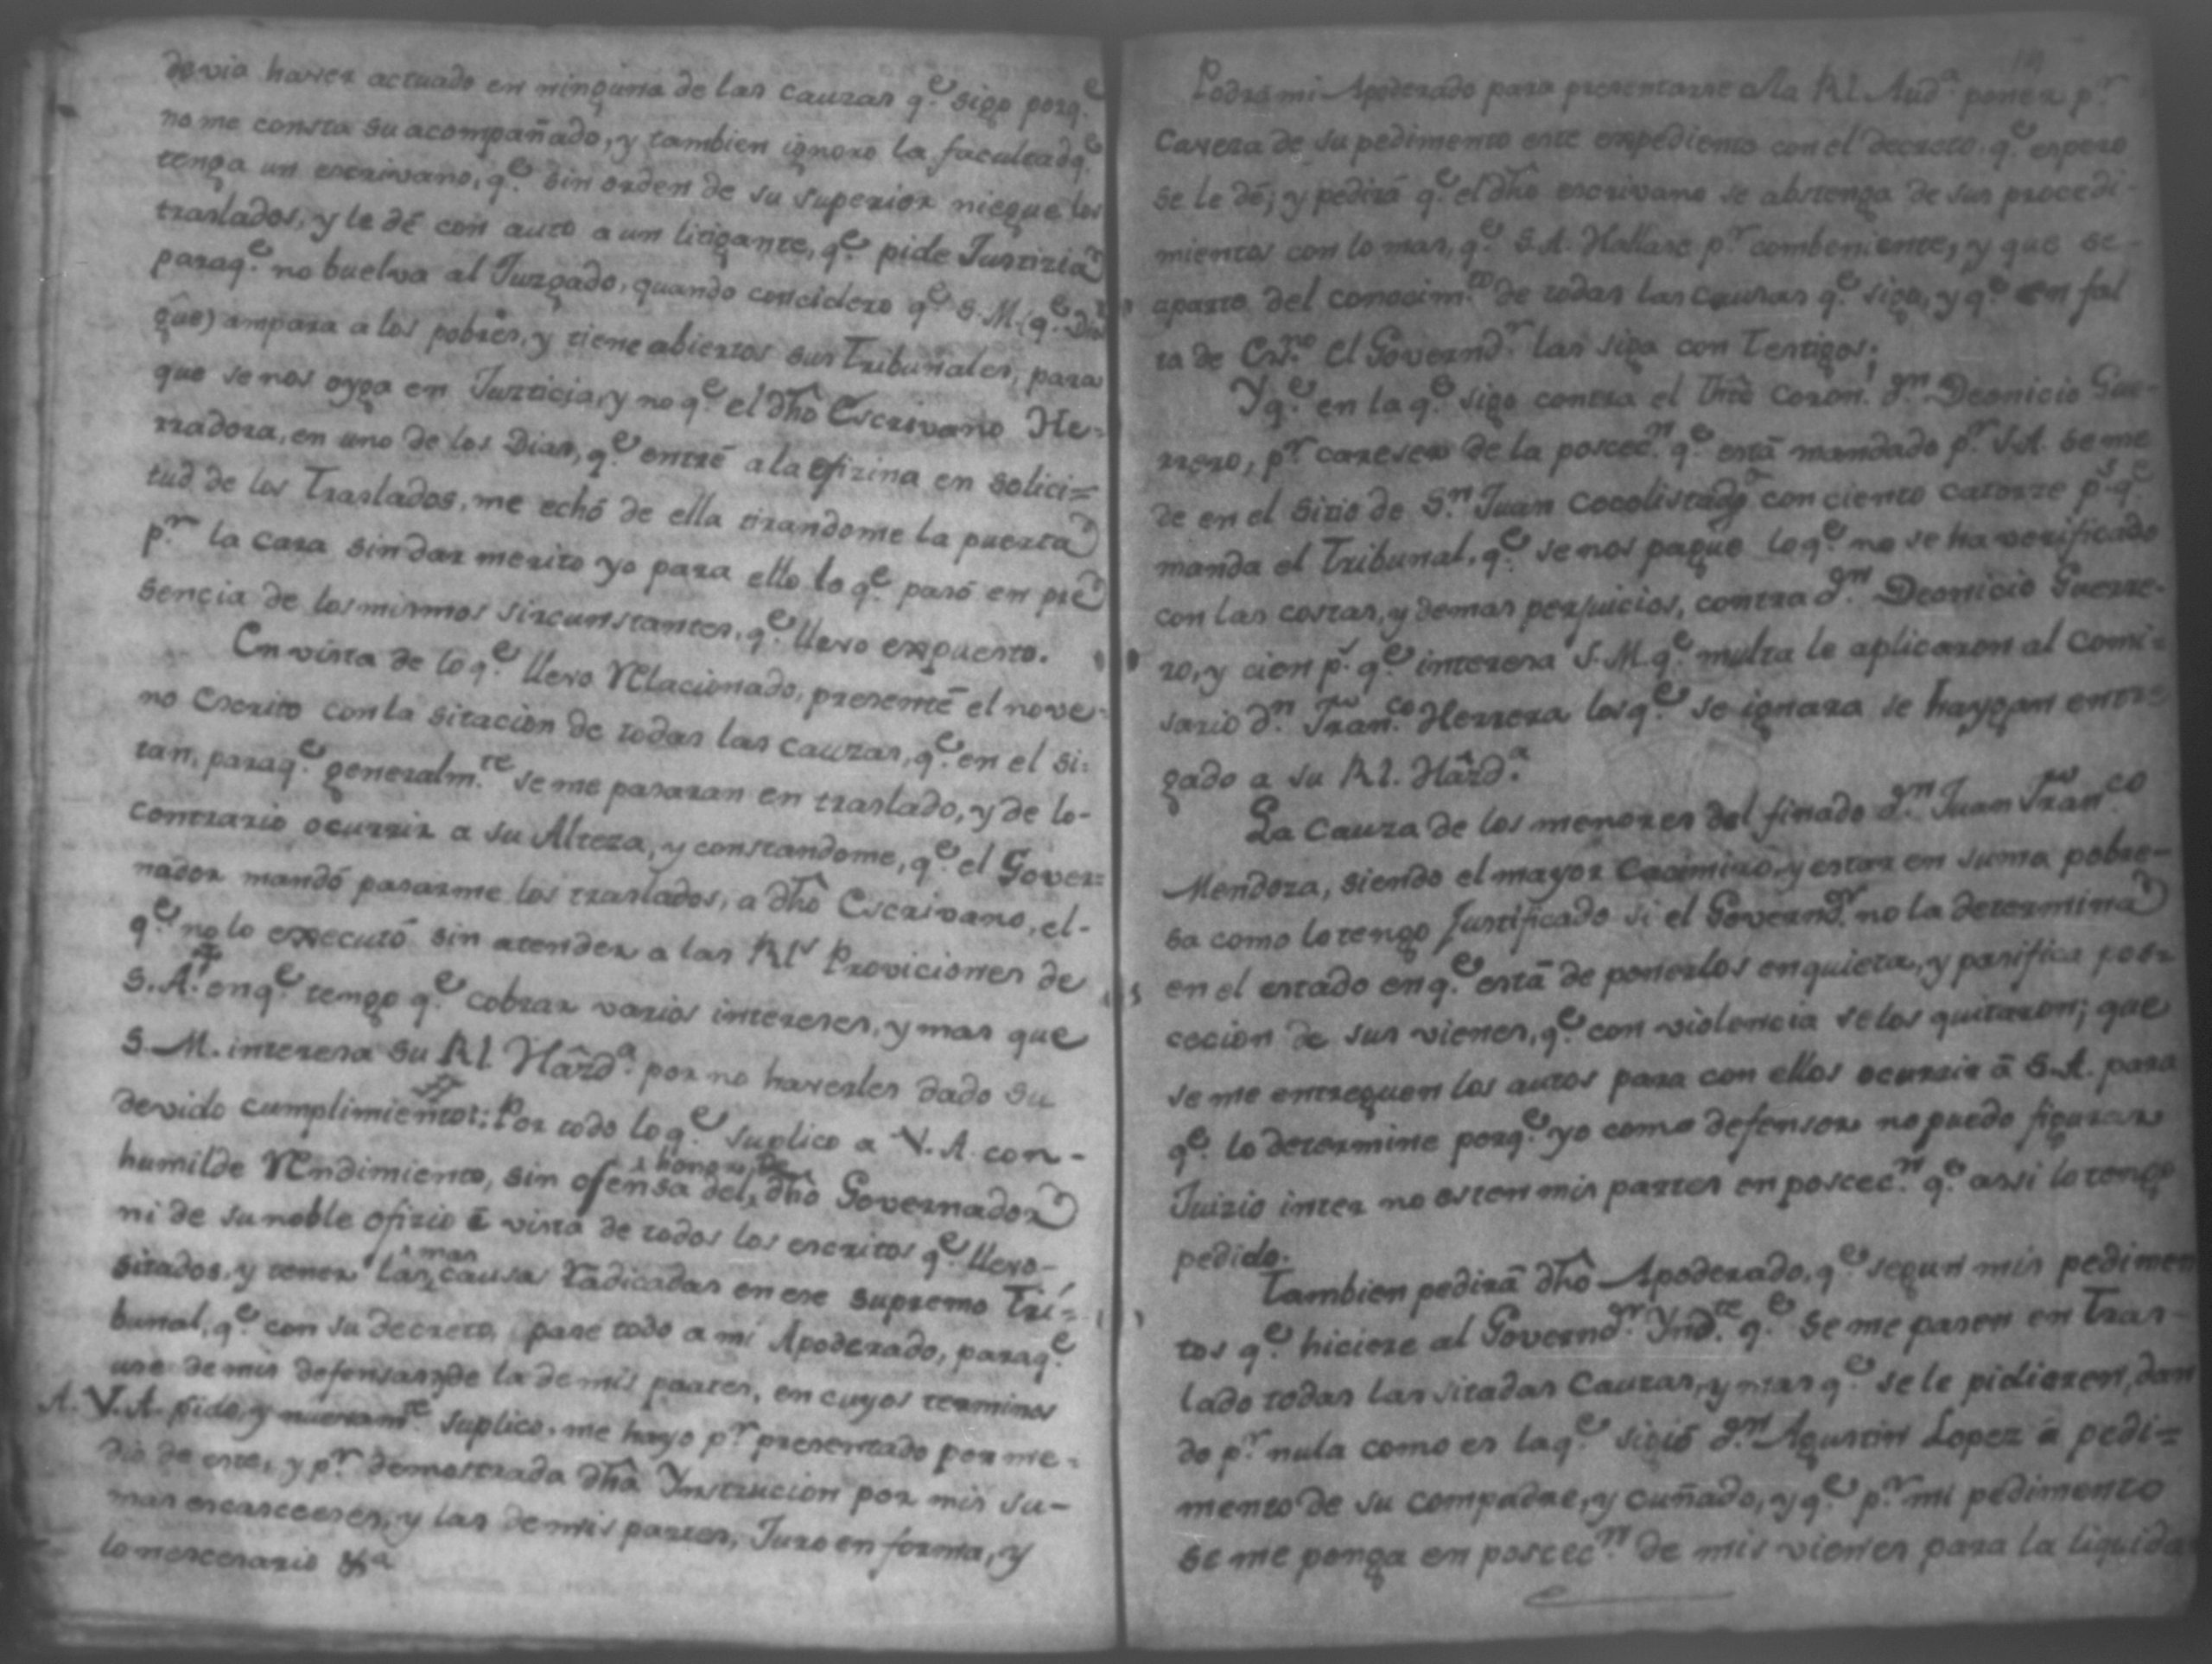 devia haver actuado en ninguna de las cauzas q.e sigo porq.e
no me consta su acompañado, y tambien ignoro la facultad q.e
tenga un escrivano, q.e sin orden de su superior niegue los
traslados, y le dé con auto a un litigante, q.e pide Justizia
paraq.e no buelva al Juzgado, quando concidero q.e S. M. (q.e Dios
gûe) ampara a los pobres, y tiene abiertos sus Tribunales, para
que se nos oyga en Justicia, y no q.e el dhô Escrivano He-
rradora, en uno de los Dias, q.e entré a la ofizina en solici=
tud de los Traslados, me echó de ella tirandome la puerta
p.r la cara sin dar merito yo para ello lo q.e pasó en pre
sencia de los mismos sircunstantes, q.e llevo expuesto.
En vista de lo q.e llevo Relacionado, presenté el nove-
no Escrito con la sitacion de todas las cauzas, q.e en el si-
tan, paraq.e generalm.te se me pasaran en traslado, y de lo-
contrario ocurrir a su Alteza, y constandome, q.e el Gover=
nador mandó pasarme los traslados, a dhô Escrivano, el-
q.e no lo executó sin atender a las Rl.s Proviciones de
S. A. en q.e tengo q.e cobrar varios intereses, y mas que
S. M. interesa su Rl. Hâzd.a por no haverles dado su
devido cumplimientos: Por todo lo q.e suplico a V. A. con-
humilde Rendimiento, sin ofensa del honor, de dhô Governador
ni de su noble ofizio â vista de todos los escritos q.e llevo-
sitados, y tener las mas causas radicadas en ese supremo Tri=
bunal, q.e con su decreto, pase todo a mi Apoderado, paraq.e
use de mis defensas, y de la de mis partes, en cuyos terminos
A. V. A. pido, y nuevam.te suplico, me haya p.r presentado por me-
dio de este, y p.r demostrada dhâ Ynstrucion por mis su-
mas escaceses, y las de mis partes, Juro en forma, y
lo nescesario &.a
19
Podrá mi Apoderado para presentarse a la Rl. Aud.a poner p.r
Cavesa de su pedimento este expediente con el decreto, q.e espero
se le dé; y pedirá q.e el dhô escrivano se abstenga de sus procedi-
mientos con lo mas, q.e S. A. Hallare p.r combeniente, y que se-
aparte del conocim.to de todas las causas q.e sigo, y q.e en fal
ta de Ess.no el Governd.r las siga con Testigos;
Y q.e en la q.e sigo contra el thê Coron.l d.n Deonicio Gue-
rrero, p.r careser de la poscec.n q.e está mandado p.r S. A. se me
de en el sitio de S.n Juan Cocolistago con ciento catorze p.s q.e
manda el Tribunal, q.e se nos pague lo q.e no se ha verificado
con las costas, y demas perjuicios, contra d.n Deonicio Guerre-
ro, y cien p.s q.e interesa S. M. q.e multa le aplicaron al Comi-
sario d.n Fran.co Herrera los q.e se ignora se haygan entre
gado a su Rl. Hâzd.a
La Cauza de los menores del finado d.n Juan Fran.co
Mendoza, siendo el mayor Casimiro, y estar en suma pobre-
sa como lo tengo Justificado si el Governd.r no la determina
en el estado en q.e está de ponerlos en quieta, y pasifica pos-
cecion de sus vienes, q.e con violencia se los quitaron; que
se me entreguen los autos para con ellos ocurrir â S. A. para
q.e lo determine porq.e yo como defensor no puedo figurar
Juizio inter no esten mis partes en poscec.n q.e assi lo tengo
pedido.
Tambien pedirá dhô Apoderado, q.e segun mis pedimen
tos q.e hiciere al Governd.r Ynd.te q.e se me pasen en Tras-
lado todas las sitadas Cauzas, y mas q.e se le pidieren, dan
do p.r nula como es la q.e siguió d.n Agustin Lopez â pedi=
mento de su compadre, y cuñado, y q.e p.r mi pedimento
se me ponga en poscec.n de mis vienes para la liquida